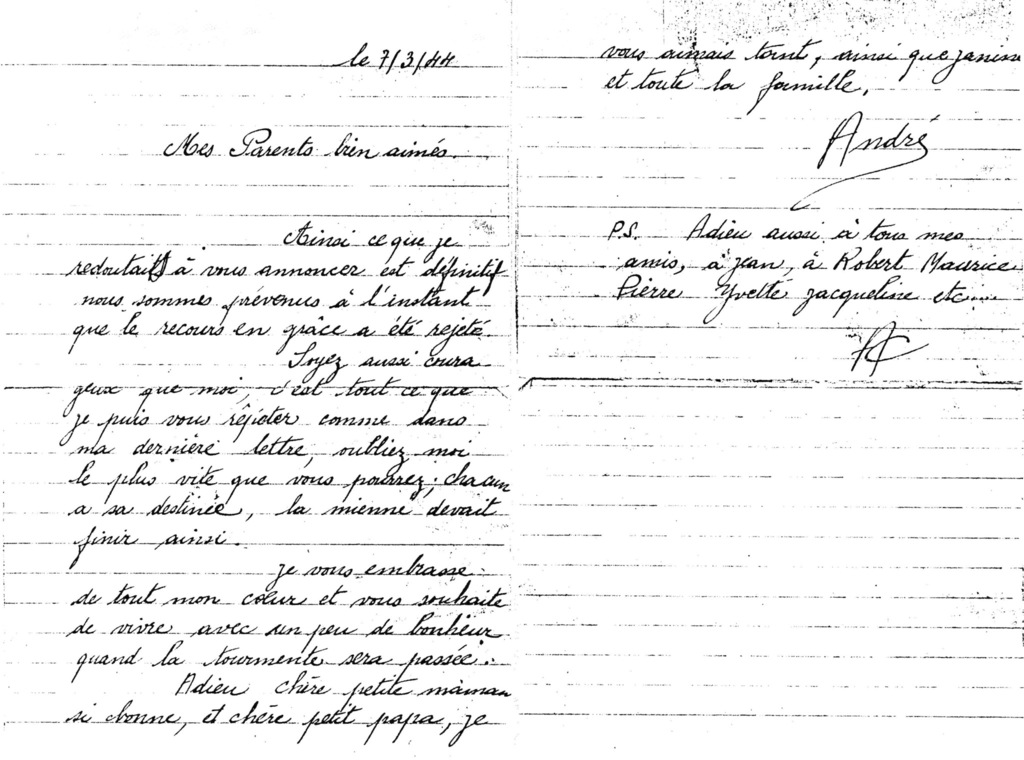 le 7/3/44
Mes Parents bien aimés.
Ainsi ce que je
redoutais à vous annoncer est définitif
nous sommes prévenus à l'instant
que le recours en grâce a été rejeté.
Soyez aussi coura
geux que moi, c'est tout ce que
je puis vous répéter comme dans
ma dernière lettre, oubliez moi
le plus vite que vous pourrez ; chacun
a sa destinée, la mienne devait
finir ainsi.
Je vous embrasse
de tout mon cœur et vous souhaite
de vivre avec un peu de bonheur
quand la tourmente sera passée.
Adieu chère petite maman
si bonne, et chère petit papa, je
vous aimais tant, ainsi que Janine
et toute la famille.
André
P.S. Adieu aussi à tous mes
amis, à Jean, à Robert Maurice
Pierre Yvette Jacqueline etc...
AC